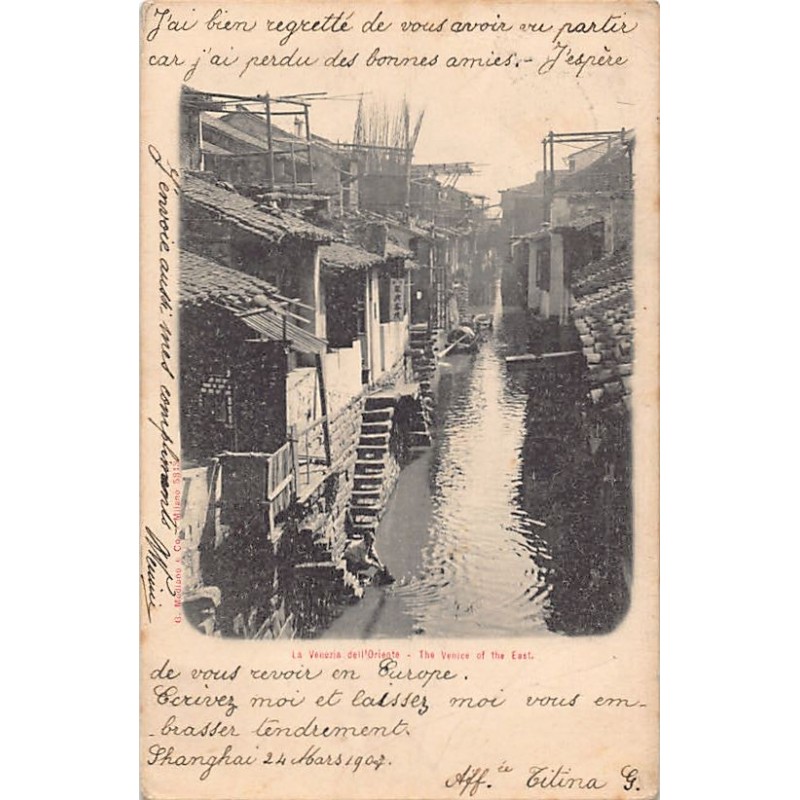 J'ai bien regretté de vous avoir vu partir
car j'ai perdu des bonnes amies.- J'espère
J'envoie aussi mes compliments
G. Modiano & Co. - Milano 
La Venezia dell'Oriente - The Venice of the East.
de vous revoir en Europe.
Ecrivez moi et laissez moi vous em-
-brasser tendrement.
Shanghai 24 Mars 1904.
Aff.ée Titina G.